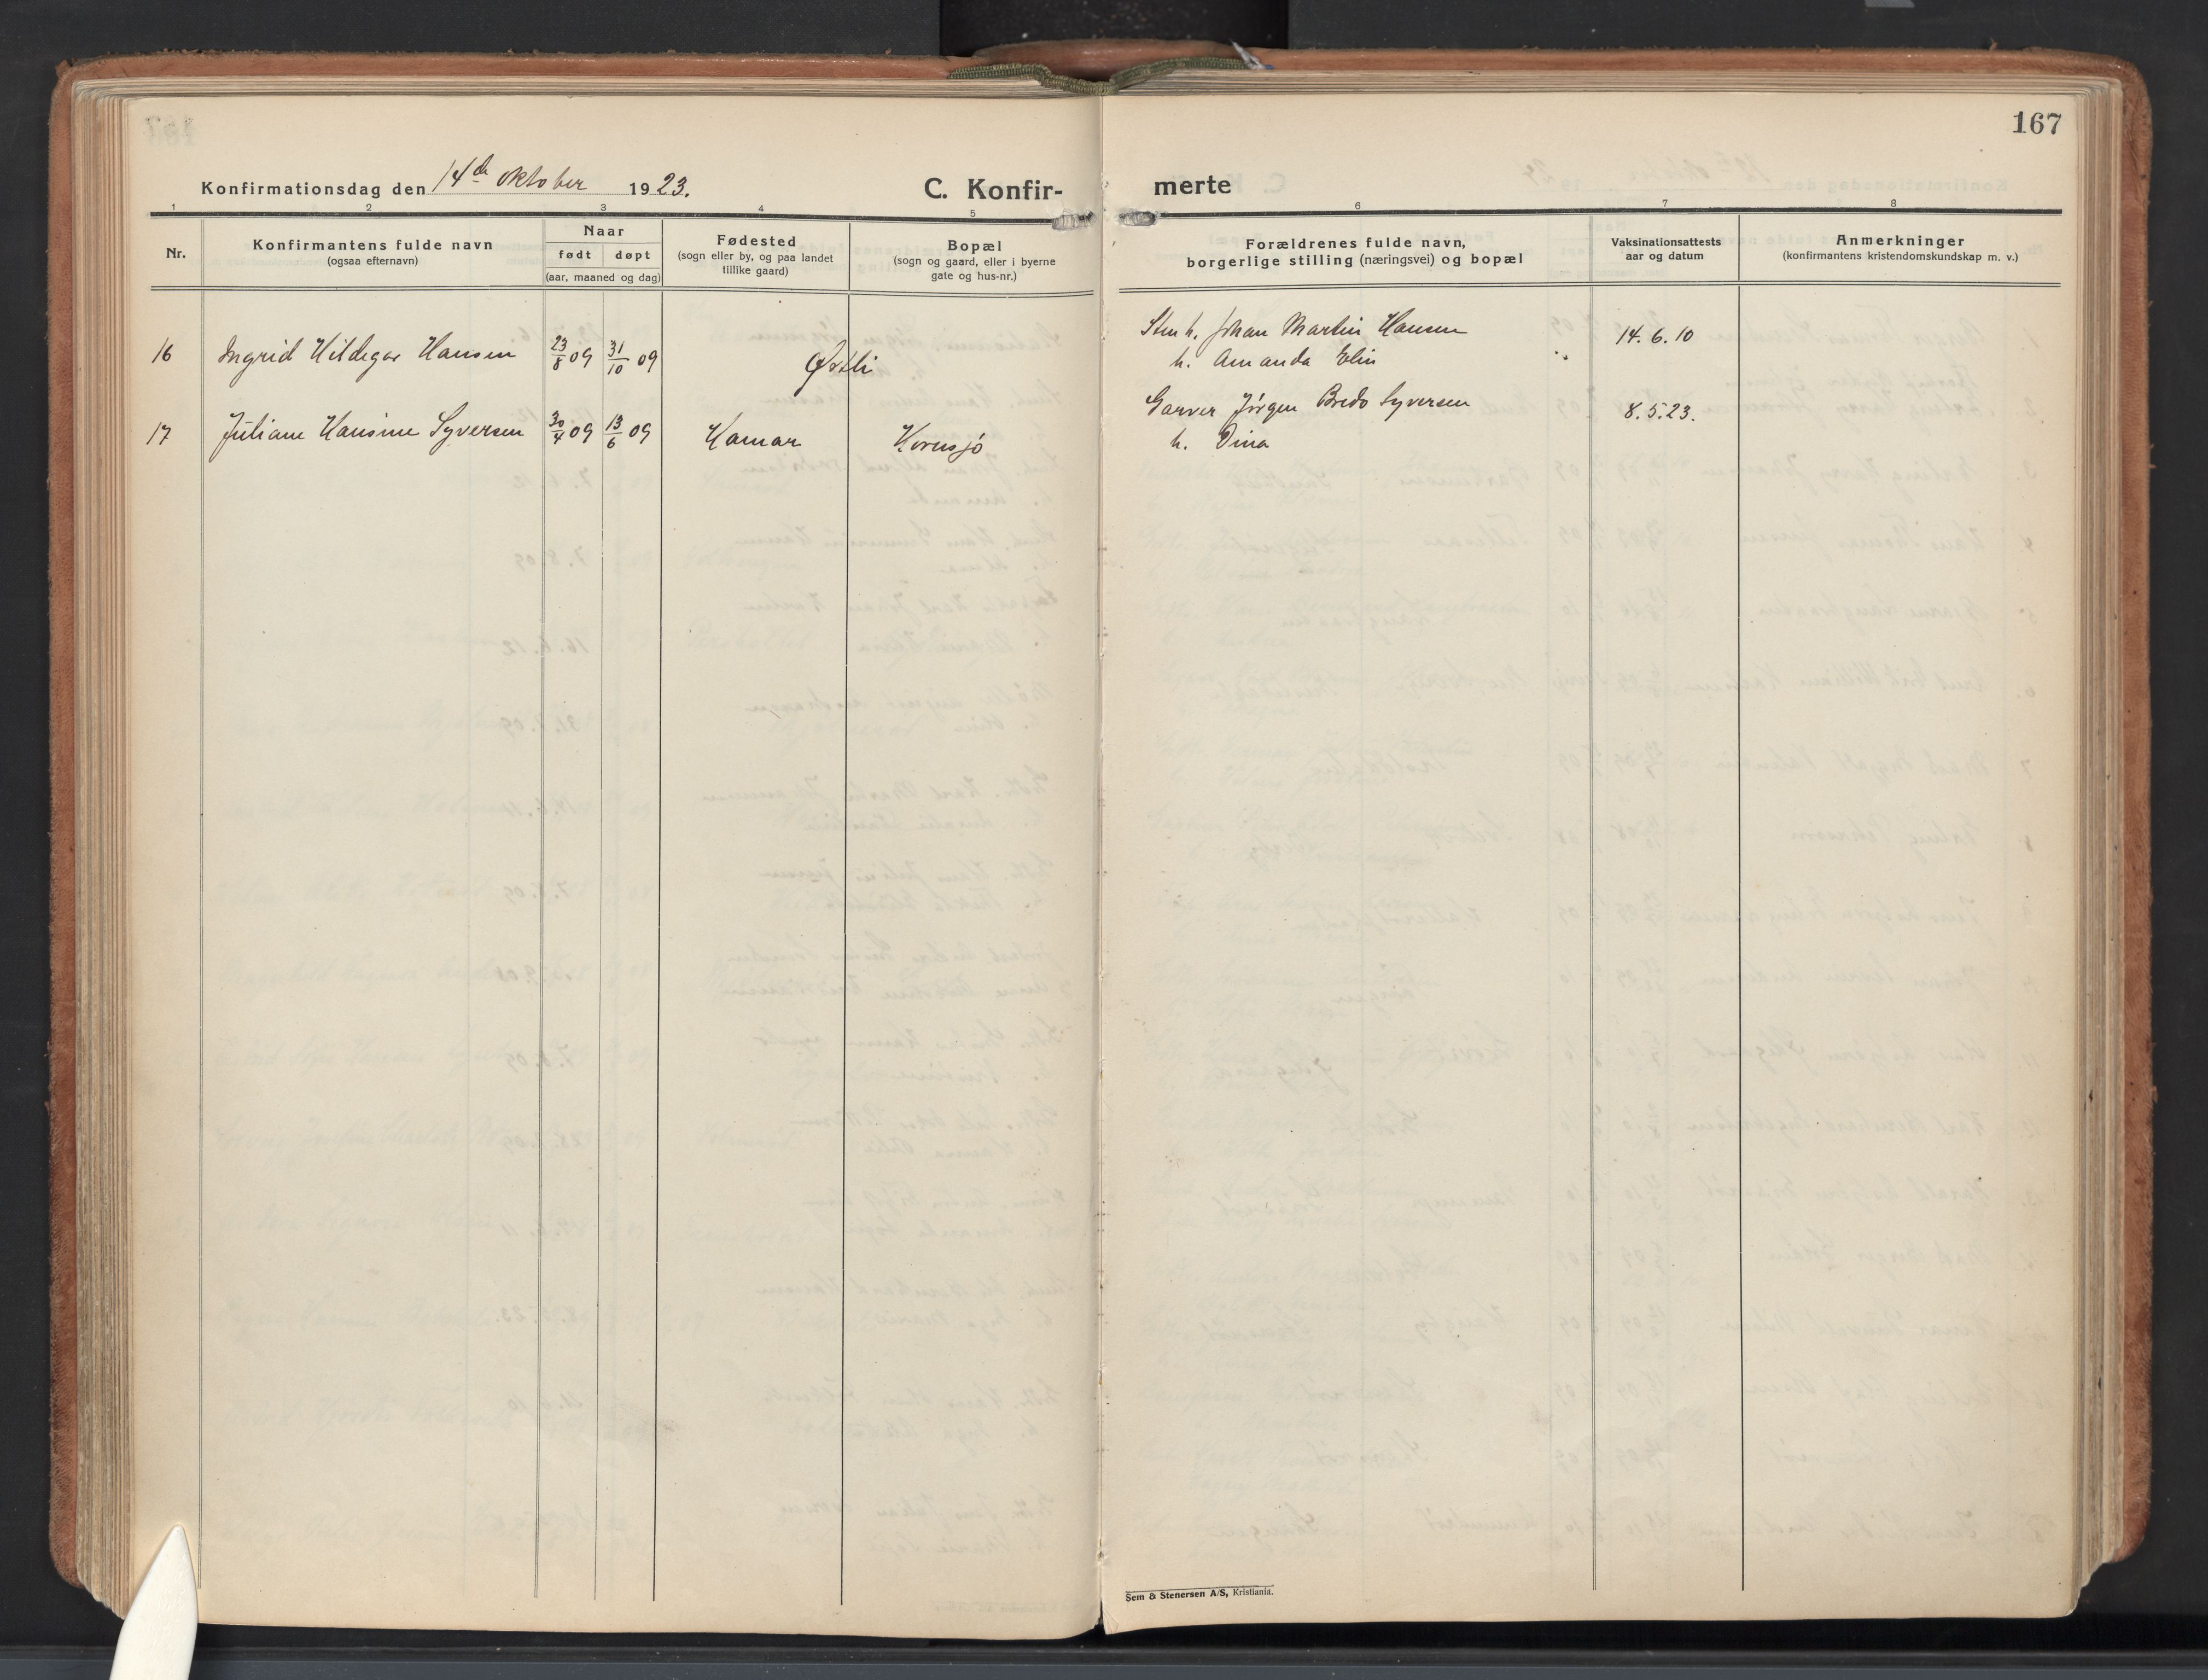 167
Konfirmationsdag den 14de oktober 1923.
C. Konfir-
merte
1 2 3 4 5 6 7 8
Nr.
Konfirmantens fulde navn
(ogsaa efternavn)
Naar
født døpt
(aar, maaned og dag)
Fødested
(sogn eller by, og paa landet
tillike gaard)
Bopæl
(sogn og gaard, eller i byerne
gate og hus-nr.)
Forældrenes fulde navn,
borgerlige stilling (næringsvei) og bopæl
Vaksinationsattests
aar og datum
Anmerkninger
(konfirmantens kristendomskundskap m. v.)
16 Ingrid Hildegar Hansen 23/8 09 31/10 09 Østli
Stenh. Johan Martin Hansen 14. 6. 10
h. Amanda Elin
17 Juliane Hansine Syversen 30/4 09 13/6 09 Hamar Kornsjø
Garver Jørgen Bredo Syversen 8. 5. 23.
h. Dina
Sem & Stenersen A/S, Kristiania.